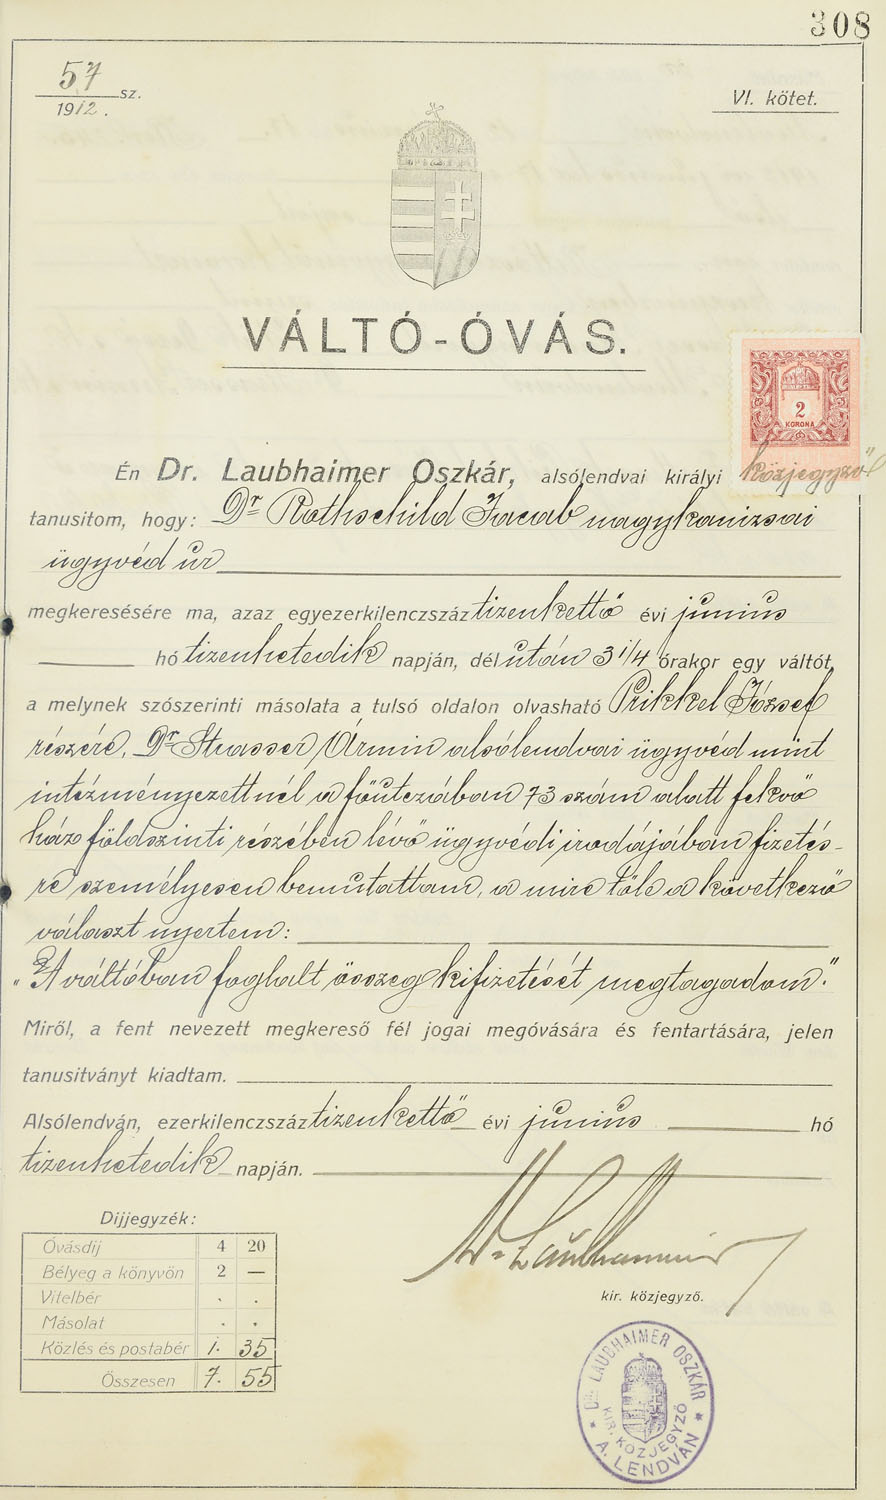 308
57 sz.
1912.
VI. kötet.
VÁLTÓ-ÓVÁS.
2
KORONA
Én Dr. Laubhaimer Oszkár, alsólendvai királyi közjegyző
tanusitom, hogy: Dr Rothschild Jacab nagykanizsai
ügyvéd úr
megkeresésére ma, azaz egyezerkilenczszáz tizenkettő évi junius
hó tizenhetedik napján, dél után 3 1/4 órakor egy váltót,
a melynek szószerinti másolata a tulsó oldalon olvasható Prikkel József
részére, Dr Strasser Ármin alsólendvai ügyvéd mint
intézményezettnél a főutczában 73 szám alatt fekvő
ház földszinti részében lévő ügyvédi irodájában fizetés-
re személyesen bemutattam, a mire tőle a következő
választ nyertem:
„A váltóban foglalt összeg kifizetését megtagadom."
Miről, a fent nevezett megkereső fél jogai megóvására és fentartására, jelen
tanusitványt kiadtam.
Alsólendván, ezerkilenczszáz tizenkettő évi junius hó
tizenhetedik napján.
Dr Laubhaimer
kir. közjegyző.
Dijjegyzék:
Óvásdij 4 20
Bélyeg a könyvön 2 —
Vitelbér . .
Másolat . .
Közlés és postabér 1. 35
Összesen 7. 55
DR. LAUBHAIMER OSZKÁR
KIR. KÖZJEGYZŐ
* A. LENDVÁN *